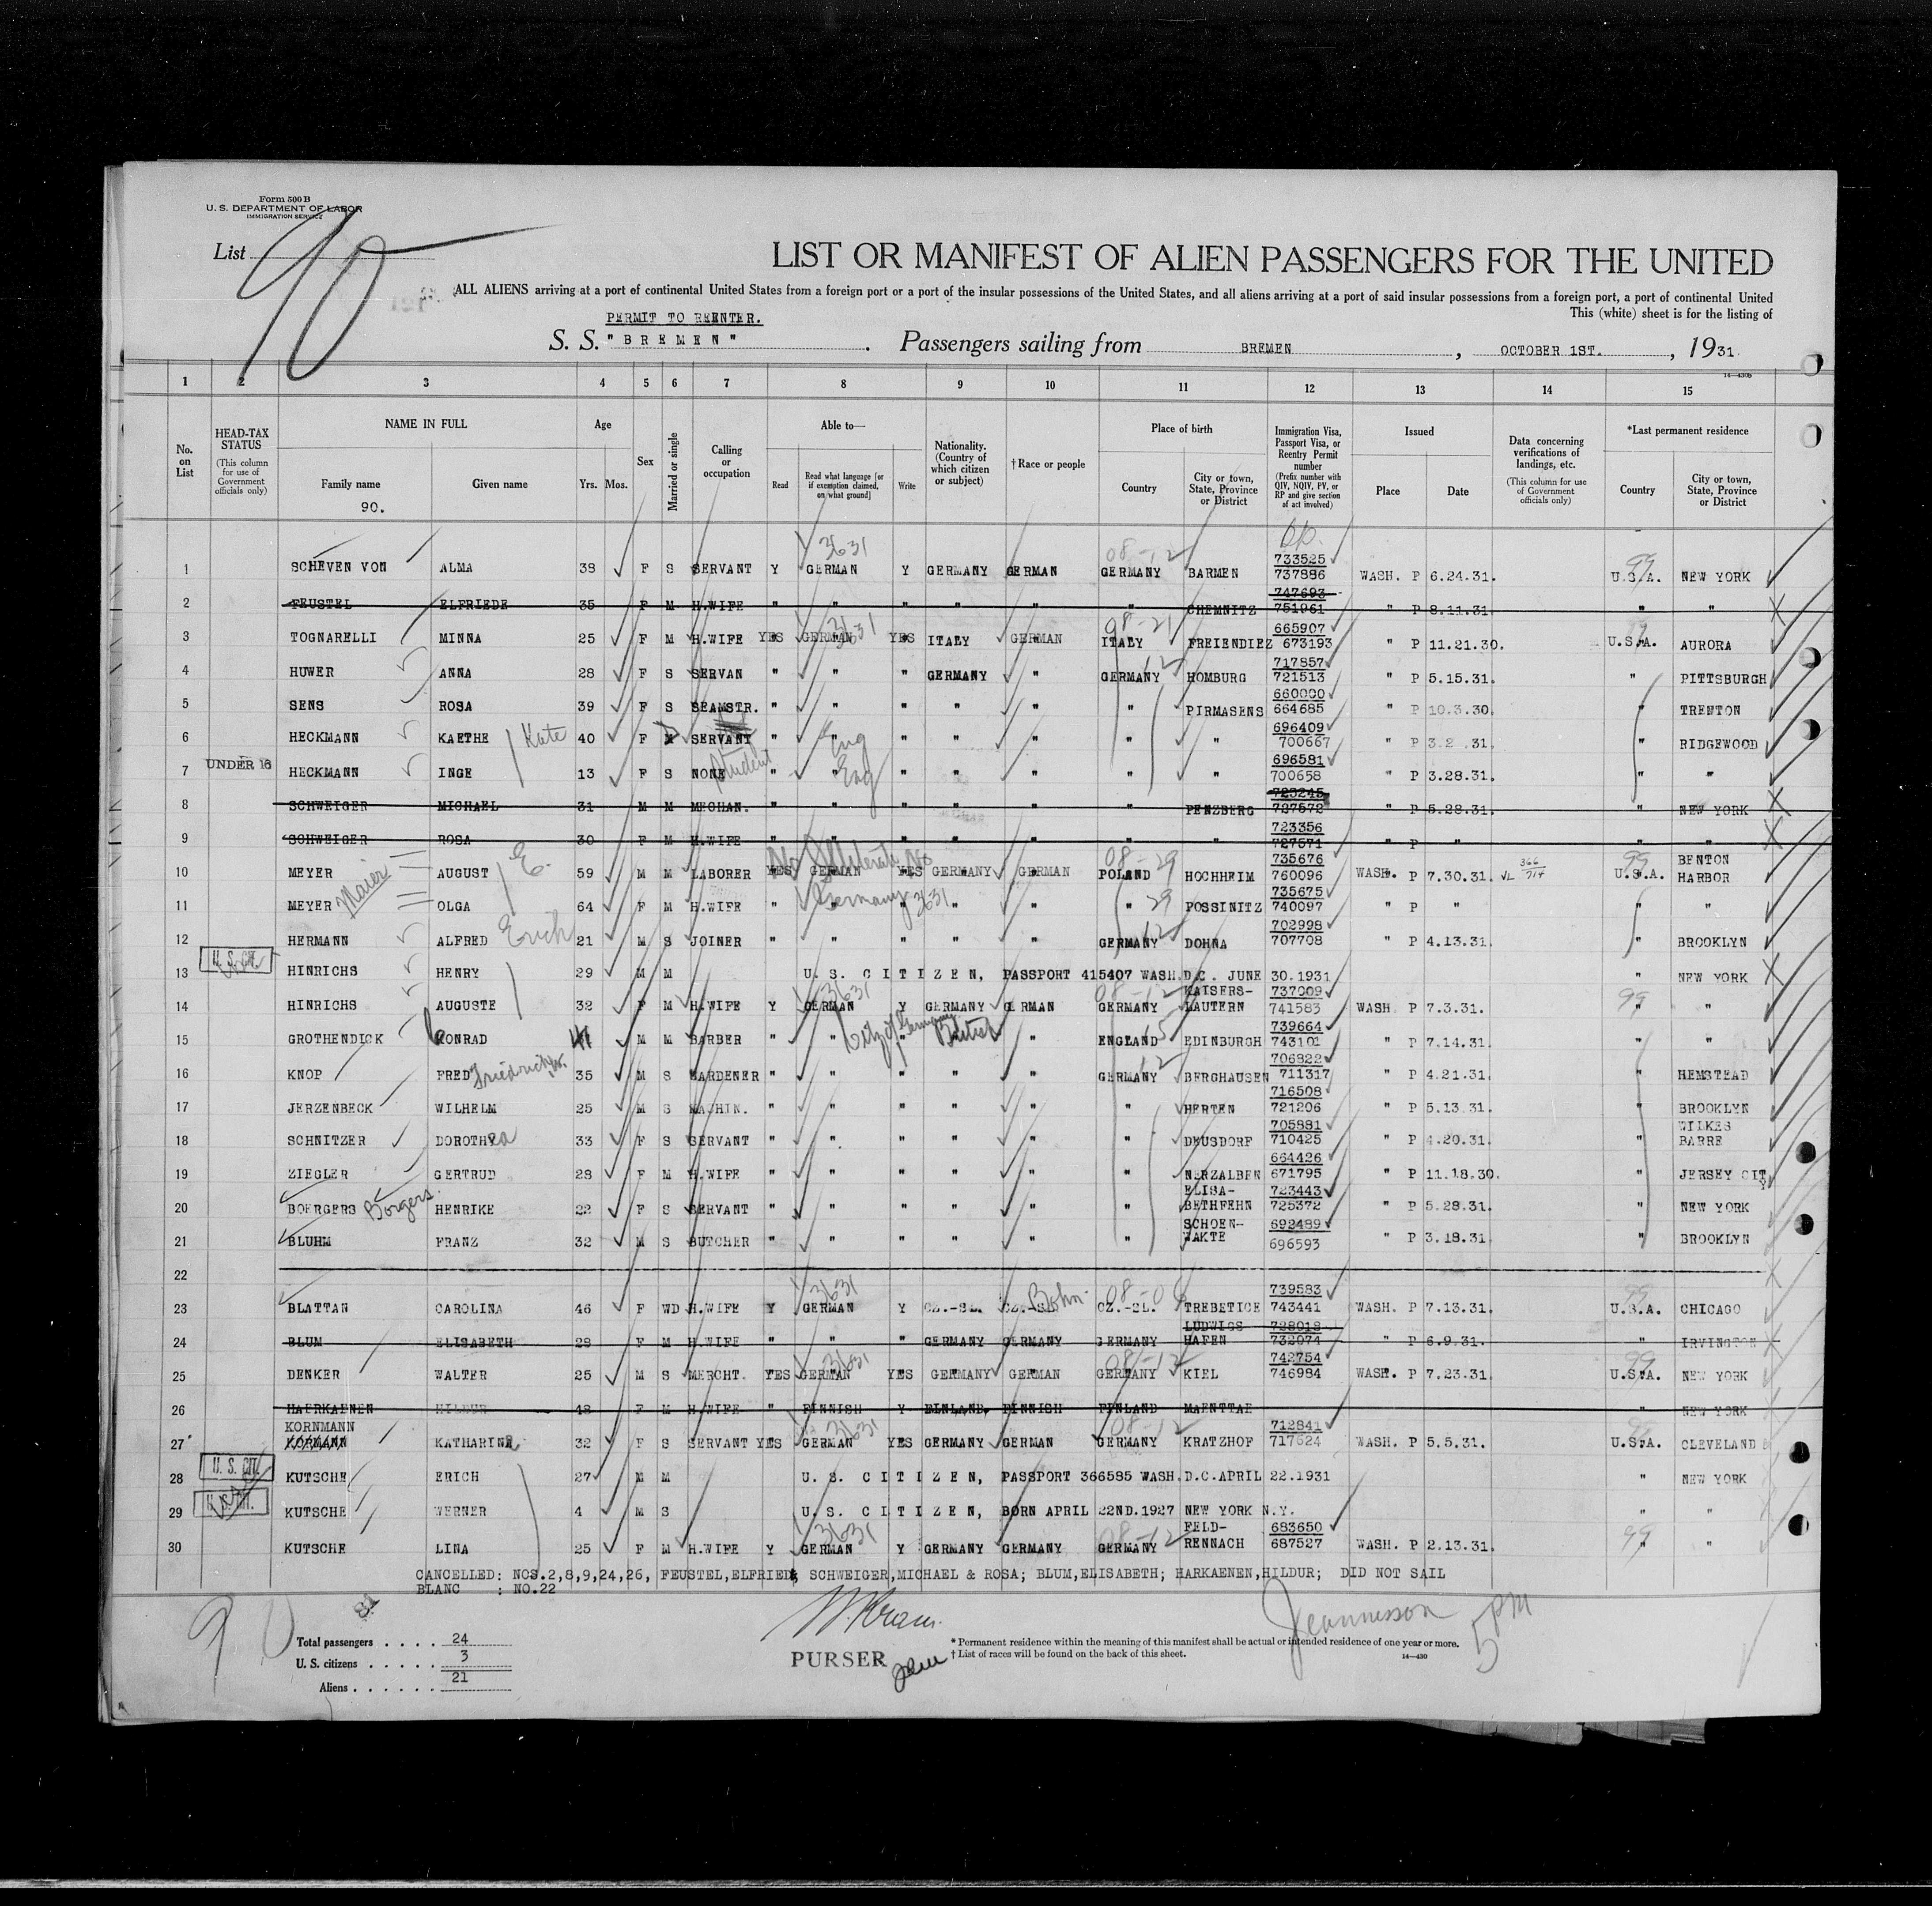 Form 500 B
U. S. DEPARTMENT OF LABOR
IMMIGRATION SERVICE
List 90
LIST OR MANIFEST OF ALIEN PASSENGERS FOR THE UNITED
ALL ALIENS arriving at a port of continental United States from a foreign port or a port of the insular possessions of the United States, and all aliens arriving at a port of said insular possessions from a foreign port, a port of continental United
This (white) sheet is for the listing of
PERMIT TO REENTER.
S. S. "BREMEN". Passengers sailing from BREMEN, OCTOBER 1ST., 1931
14-430b
1 2 3 4 5 6 7 8 9 10 11 12 13 14 15
No. on List
HEAD-TAX STATUS (This column for use of Government officials only)
NAME IN FULL Family name Given name
90.
Age Yrs. Mos.
Sex
Married or single
Calling or occupation
Able to— Read Read what language [or if exemption claimed, on what ground] Write
Nationality. (Country of which citizen or subject)
† Race or people
Place of birth Country City or town, State, Province or District
Immigration Visa, Passport Visa, or Reentry Permit number (Prefix number with QIV, NQIV, PV, or RP and give section of act involved)
Issued Place Date
Data concerning verifications of landings, etc. (This column for use of Government officials only)
*Last permanent residence Country City or town, State, Province or District
1 SCHEVEN VON ALMA 38 F S SERVANT Y GERMAN 3631 Y GERMANY GERMAN GERMANY 08-12 BARMEN 733525 737886 WASH. P 6.24.31. U.S.A. 99 NEW YORK
2 FEUSTEL ELFRIEDE 35 F M H.WIFE " " " " " " CHEMNITZ 747693 751961 " P 8.11.31 " "
3 TOGNARELLI MINNA 25 F M H.WIFE YES GERMAN 3631 YES ITALY GERMAN ITALY 08-21 FREIENDIEZ 665907 673193 " P 11.21.30. U.S.A. AURORA
4 HUWER ANNA 28 F S SERVAN " " " GERMANY " GERMANY 12 HOMBURG 717857 721513 " P 5.15.31. " PITTSBURGH
5 SENS ROSA 39 F S SEAMSTR. " " " " " " PIRMASENS 660000 664685 " P 10.3.30. TRENTON
6 HECKMANN KAETHE Kate 40 F SERVANT " Eng " " " " " 696409 700667 " P 3.2 .31. " RIDGEWOOD
7 UNDER 16 HECKMANN INGE 13 F S NONE Student " " Eng " " " " " 696581 700658 " P 3.28.31. " "
8 SCHWEIGER MICHAEL 31 M M MECHAN. " " " " " " PENZBERG 723245 727572 " P 5.28.31. " NEW YORK
9 SCHWEIGER ROSA 30 F M H.WIFE " " " " " " " 723356 727571 " P " " "
10 MEYER Maier AUGUST E. 59 M M LABORER YES No GERMAN Illiterate YES No GERMANY GERMAN POLAND 08-29 HOCHHEIM 735676 760096 WASH. P 7.30.31. U.S.A. 99 BENTON HARBOR
11 MEYER OLGA 64 F M H.WIFE " " Germany 3631 " " " " 29 POSSINITZ 735675 740097 " P " " "
12 HERMANN ALFRED Erich 21 M S JOINER " " " " " GERMANY 12 DOHNA 702998 707708 " P 4.13.31. " BROOKLYN
13 U. S. CIT. HINRICHS HENRY 29 M M U. S. CITIZEN, PASSPORT 415407 WASH.D.C. JUNE 30.1931 " NEW YORK
14 HINRICHS AUGUSTE 32 F M H.WIFE Y GERMAN 3631 Y GERMANY GERMAN GERMANY 08-12 KAISERS-LAUTERN 737009 741583 WASH P 7.3.31. 99 "
15 GROTHENDICK KONRAD 41 M M BARBER " " " British " ENGLAND 15 EDINBURGH 739664 743101 " P 7.14.31. " "
16 KNOP FRED Friedrich W. 35 M S GARDENER " " " " " GERMANY 12 BERGHAUSEN 706822 711317 " P 4.21.31. " HEMSTEAD
17 JERZENBECK WILHELM 25 M S MACHIN. " " " " " " HERTEN 716508 721206 " P 5.13.31. " BROOKLYN
18 SCHNITZER DOROTHEA 33 F S SERVANT " " " " " " DEUSDORF 705881 710425 " P 4.20.31. " WILKES BARRE
19 ZIEGLER GERTRUD 28 F M H.WIFE " " " " " " NERZALBEN 664426 671795 " P 11.18.30. " JERSEY CITY
20 BOERGERS Borgers HENRIKE 22 F S SERVANT " " " " " " ELISA-BETHFEHN 723443 725372 " P 5.28.31. " NEW YORK
21 BLUHM FRANZ 32 M S BUTCHER " " " " " " SCHOEN-WAKTE 692489 696593 " P 3.18.31. " BROOKLYN
22
23 BLATTAN CAROLINA 46 F WD H.WIFE Y GERMAN 3631 Y CZ.-SL. CZ.-SL. Bohm. CZ.-SL. 08-06 TREBETICE 739583 743441 WASH. P 7.13.31. U.S.A. 99 CHICAGO
24 BLUM ELISABETH 28 F M H.WIFE " " " GERMANY GERMANY GERMANY LUDWIGS HAFEN 728018 732074 " P 6.9.31. " IRVINGTON
25 DENKER WALTER 25 M S MERCHT. YES GERMAN 3631 YES GERMANY GERMAN GERMANY 08-12 KIEL 742754 746984 WASH. P 7.23.31. U.S.A. 99 NEW YORK
26 HAERKAENEN HILDUR 48 F M H.WIFE " FINNISH Y FINLAND FINNISH FINLAND MAENTTAE " NEW YORK
27 KORNMANN KORMANN KATHARINA 32 F S SERVANT YES GERMAN 3631 YES GERMANY GERMAN GERMANY 08-12 KRATZHOF 712841 717624 WASH. P 5.5.31. U.S.A. CLEVELAND
28 U. S. CIT. KUTSCHE ERICH 27 M M U. S. CITIZEN, PASSPORT 366585 WASH.D.C.APRIL 22.1931 " NEW YORK
29 U. S. CIT. KUTSCHE WERNER 4 M S U. S. CITIZEN, BORN APRIL 22ND.1927 NEW YORK N.Y. " "
30 KUTSCHE LINA 25 F M H.WIFE Y GERMAN 3631 Y GERMANY GERMANY GERMANY 08-12 FELD-RENNACH 683650 687527 WASH. P 2.13.31. 99 "
CANCELLED: NOS.2,8,9,24,26, FEUSTEL,ELFRIEDE SCHWEIGER,MICHAEL & ROSA; BLUM,ELISABETH; HARKAENEN,HILDUR; DID NOT SAIL
BLANC : NO.22
90
Total passengers . . . . 24
U. S. citizens . . . . . 3
Aliens . . . . . . 21
PURSER
* Permanent residence within the meaning of this manifest shall be actual or intended residence of one year or more.
† List of races will be found on the back of this sheet.
14-430
Jeannesson 5 PM